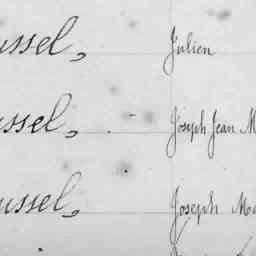 ussel, Julien
ussel, Joseph Jean M
ussel, Joseph Ma